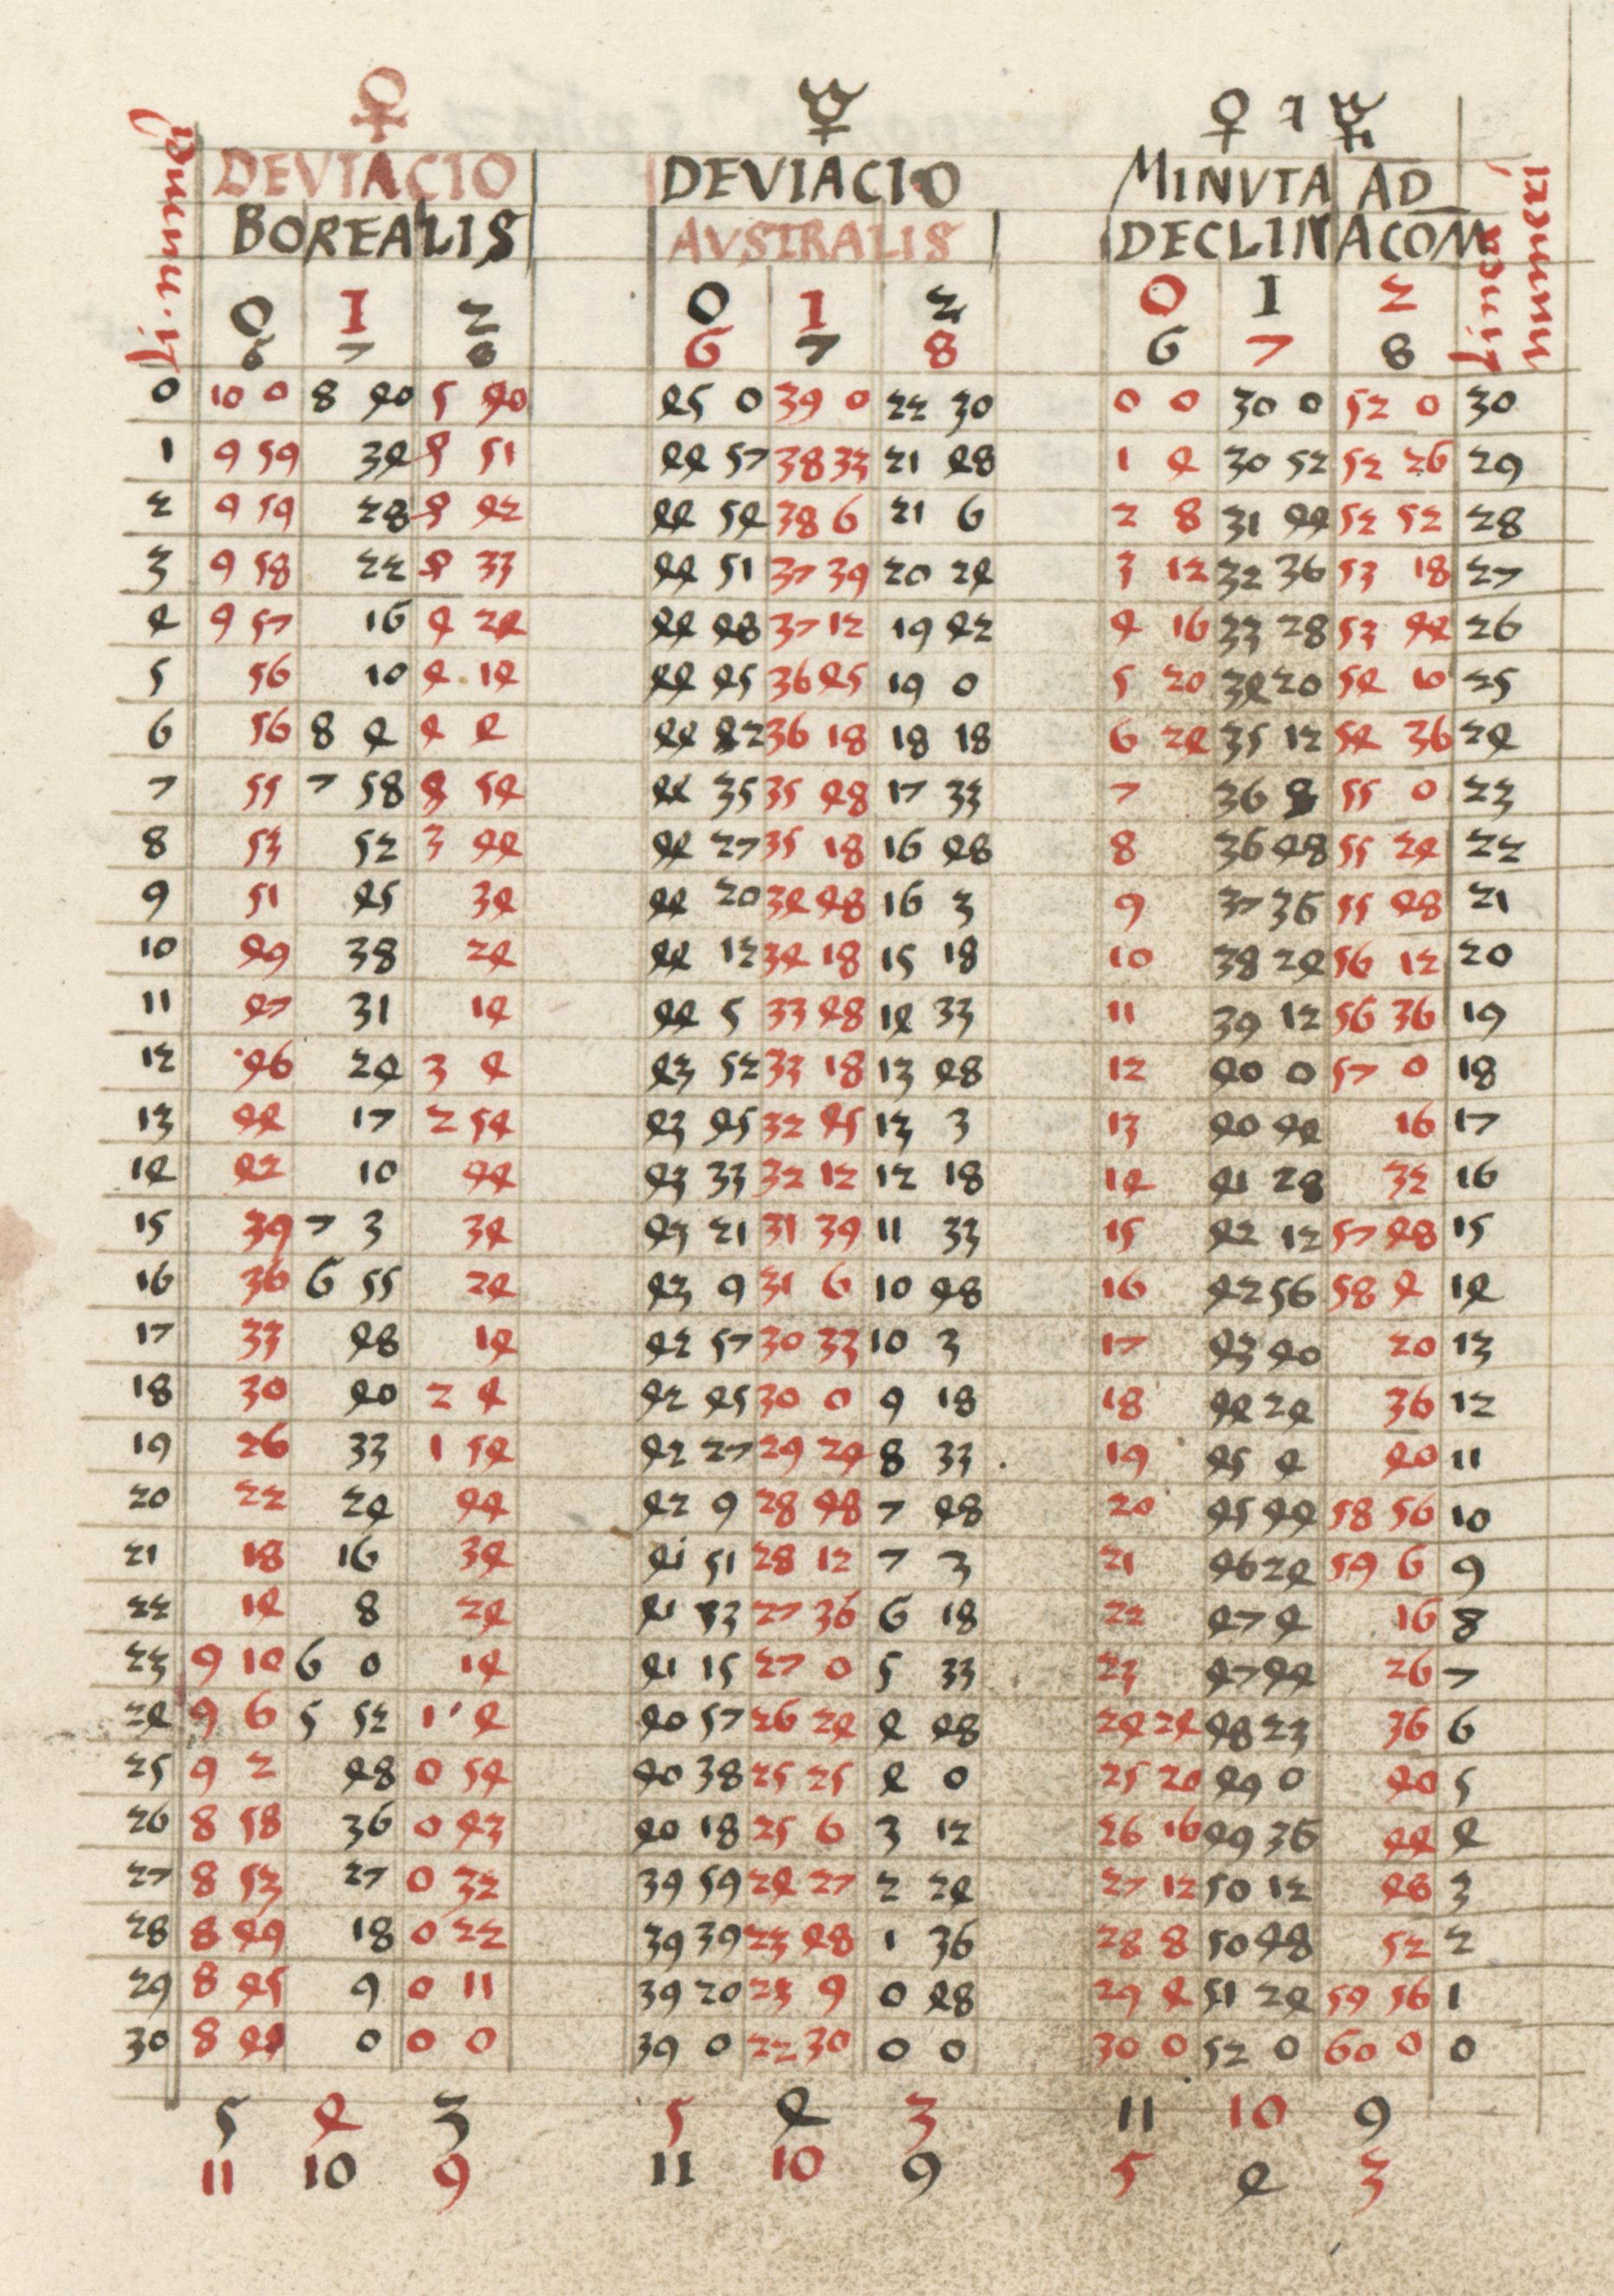 ♀ ☿ ♀ 7 ☿
li. numeri DEVIACIO DEVIACIO MINVTA AD linea numeri
BOREALIS AVSTRALIS DECLINACOM
0 1 2 0 1 2 0 1 2
6 7 8 6 7 8 6 7 8
0 10 0 8 40 5 40 45 0 39 0 22 30 0 0 30 0 52 0 30
1 9 59 34 51 44 57 38 33 21 48 1 4 30 52 52 26 29
2 9 59 28 42 44 54 38 6 21 6 2 8 31 44 52 52 28
3 9 58 22 33 44 51 37 39 20 24 3 12 32 36 53 18 27
4 9 57 16 4 24 44 48 37 12 19 42 4 16 33 28 53 44 26
5 56 10 4 14 44 45 36 45 19 0 5 20 34 20 54 10 25
6 56 8 4 4 4 44 42 36 18 18 18 6 24 35 12 54 36 24
7 55 7 58 54 44 35 35 48 17 33 7 36 55 0 23
8 53 52 3 44 44 27 35 18 16 48 8 36 48 55 24 22
9 51 45 34 44 20 34 48 16 3 9 37 36 55 48 21
10 49 38 24 44 12 34 18 15 18 10 38 24 56 12 20
11 47 31 14 44 5 33 48 14 33 11 39 12 56 36 19
12 46 24 3 4 43 52 33 18 13 48 12 40 0 57 0 18
13 44 17 2 54 43 45 32 45 13 3 13 40 44 16 17
14 42 10 44 43 33 32 12 12 18 14 41 28 32 16
15 39 7 3 34 43 21 31 39 11 33 15 42 12 57 48 15
16 36 6 55 24 43 9 31 6 10 48 16 42 56 58 4 14
17 33 48 14 42 57 30 33 10 3 17 43 40 20 13
18 30 40 2 4 42 45 30 0 9 18 18 44 24 36 12
19 26 33 1 54 42 27 29 24 8 33 19 45 4 40 11
20 22 24 44 42 9 28 48 7 48 20 45 44 58 56 10
21 18 16 34 41 51 28 12 7 3 21 46 24 59 6 9
22 14 8 24 41 33 27 36 6 18 22 47 4 16 8
23 9 10 6 0 14 41 15 27 0 5 33 23 47 44 26 7
24 9 6 5 52 1 4 40 57 26 24 4 48 24 24 48 23 36 6
25 9 2 48 0 54 40 38 25 25 4 0 25 20 49 0 40 5
26 8 58 36 0 43 40 18 25 6 3 12 26 16 49 36 44 4
27 8 53 27 0 32 39 59 24 27 2 24 27 12 50 12 48 3
28 8 49 18 0 22 39 39 23 48 1 36 28 8 50 48 52 2
29 8 45 9 0 11 39 20 23 9 0 48 29 4 51 24 59 56 1
30 8 0 0 0 39 0 22 30 0 0 30 0 52 0 60 0 0
5 4 3 5 4 3 11 10 9
11 10 9 11 10 9 5 4 3